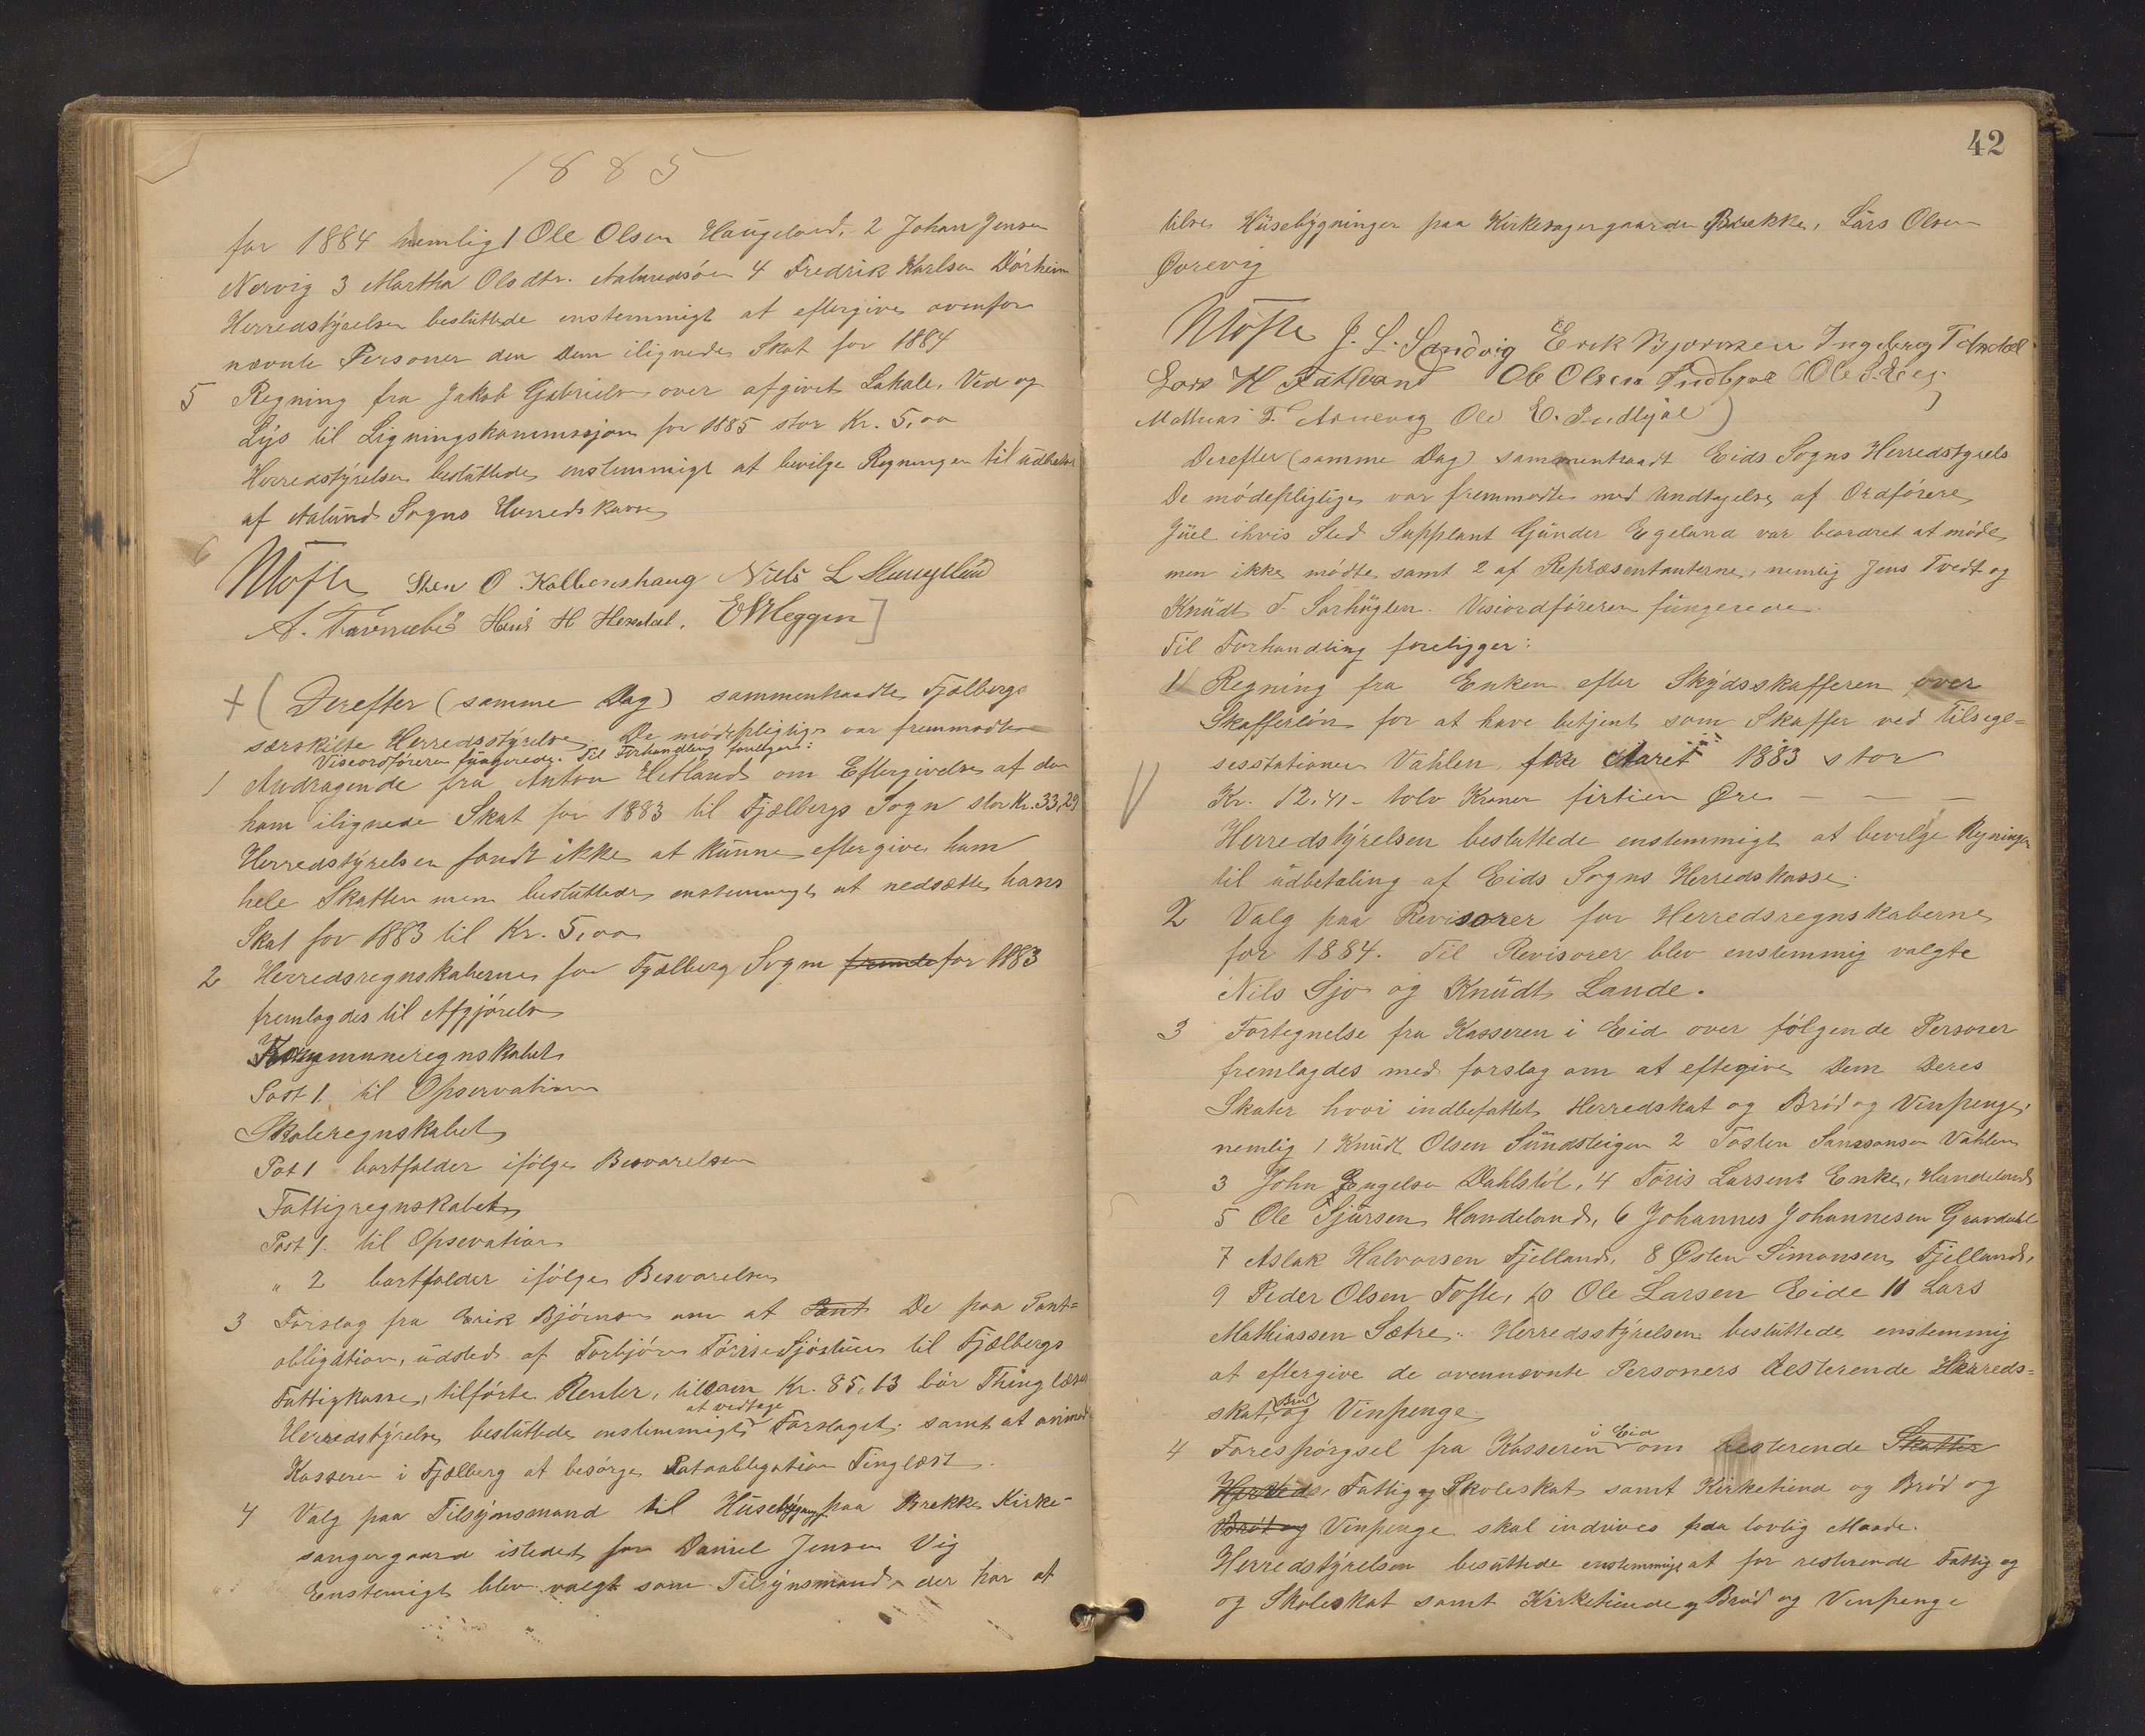 1885
for 1884 nemlig 1 Ole Olsen Haugeland, 2 Johan Jensen
Nervig 3 Martha Olsdtr. Aalundsøen 4 Fredrik Karlsen Dørheim
Herredstyrelsen besluttede enstemmigt at eftergive ovenfor
nævnte Personer den Dem ilignede Skat for 1884
5 Regning fra Jakob Gabrielsen over afgivet Lokale, Ved og
Lys til Ligningskommissjon for 1885 stor Kr. 5,00
Herredstyrelsen besluttede enstemmigt at bevilge Regningen til udbetaling
af Aalund Sogns Herredskasse
Møfte Sten O Kolbenshaug Niels L
A. Hans H
+ ( Derefter (samme Dag) sammentraadte Fjælbergs
særskilte Herredsstyrelse. De mødepligtige var fremmødte
Viseordføreren fungerede. Til Forhandling foreligger:
1 Andragende fra Anton Hetland om Eftergivelse af den
ham ilignede Skat for 1883 til Fjælbergs Sogn stor Kr. 33,29
Herredstyrelsen fandt ikke at kunne eftergive ham
hele Skatten men besluttede enstemmigt at nedsætte hans
Skat for 1883 til Kr. 5,00
2 Herredsregnskaberne for Fjælberg Sogn fremle for 1883
fremlagdes til Afgjørelse
Kommuneregnskabet
Post 1. til Opservation
Skoleregnskabet
Pot 1 bortfalder ifølge Besvarelsen
Fattigregnskabet
Post 1. til Opsevation
" 2 bortfalder ifølge Besvarelsen
3 Forslag fra Erik Bjørnsen om at Pant De paa Pant=
obligation, udsted af Torbjørn Tørrisen Sjøstuen til Fjælbergs
Fattigkasse, tilførte Renter, tilsam Kr. 85,13 bør Thinglæses
at vedtage
Herredstyrelsen besluttede enstemmigt Forslaget samt at anmode
Kasseren i Fjælberg at besørge Pataobligation Tinglæst.
4 Valg paa Tilsynsmand til Husebygning paa Brekke Kirke-
sangergaard istedet for Daniel Jensen Vig
Enstemigt blev valgt som Tilsynsmand der har at
42
tilse Husebygninger paa Kirkesangergaarden Brække, Lars Olsen
Øvrevig
Møfte J. L. Sandvig Erik Bjørnsen Ingebreg T
Lars H Ole Olsen Indbjoe Ole
Mathias T. Arnevag Ole E. Indbjoe )
Derefter (samme Dag) sammentraadt Eids Sogns Herredstyrels
De mødepligtige var fremmødte med Undtagelse af Ordførere
Juel ihvis Sted Supplant Gunder Egeland var beordret at møde,
men ikke mødte samt 2 af Repræsentanterne, nemlig Jens Tvedt og
Knudt T. Sørhuglen. Viseordføreren fungerede.
Til Forhandling foreligger:
1 Regning fra Enken efter Skydsskafferen over
Skafferløn for at have betjent som Skaffer ved Tilsigel=
sesstationen Vahlen for Aaret 1883 stor
Kr. 12,41 - tolv Kroner firtien Øre - - -
Herredstyrelsen besluttede enstemmigt at bevilge Regningen
til udbetaling af Eids Sogns Herredskasse.
2 Valg paa Revisorer for Herredsregnskaberne
for 1884. Til Revisorer blev enstemmig valgte
Nils Sjo og Knudt Lande.
3 Fortegnelse fra Kasseren i Eid over følgende Personer
fremlagdes med forslag om at eftegive Dem Deres
Skater hvori indbefattet Herredskat og Brød og Vinpenge,
nemlig 1 Knudt Olsen Sundsteigen 2 Tosten Sanssonsen Vahlen
3 John Engelsen Dahlstøl, 4 Tøris Larsens Enke, Handeland
5 Ole Sjursen Handeland, 6 Johannes Johannesen Gravdahl
7 Aslak Halvorsen Fjelland, 8 Østen Simonsen Fjelland,
9 Peder Olsen Tofte, 10 Ole Larsen Eide 11 Lars
Mathiassen Sætre. Herredsstyrelsen besluttede enstemmig
at eftergive de ovennævnte Personers resterende Herreds=
skat, Brød og Vinpenge
4 Forespørgsel fra Kasseren i Eid om resterende Skatter
Herreds, Fattig og Skoleskat samt Kirketiend og Brød og
Brød og Vinpenge skal indrives paa lovlig Maade.
Herredstyrelsen besuttede enstemmigt at for resterende Fattig og
og Skoleskat samt Kirketiende og Brød og Vinpenge